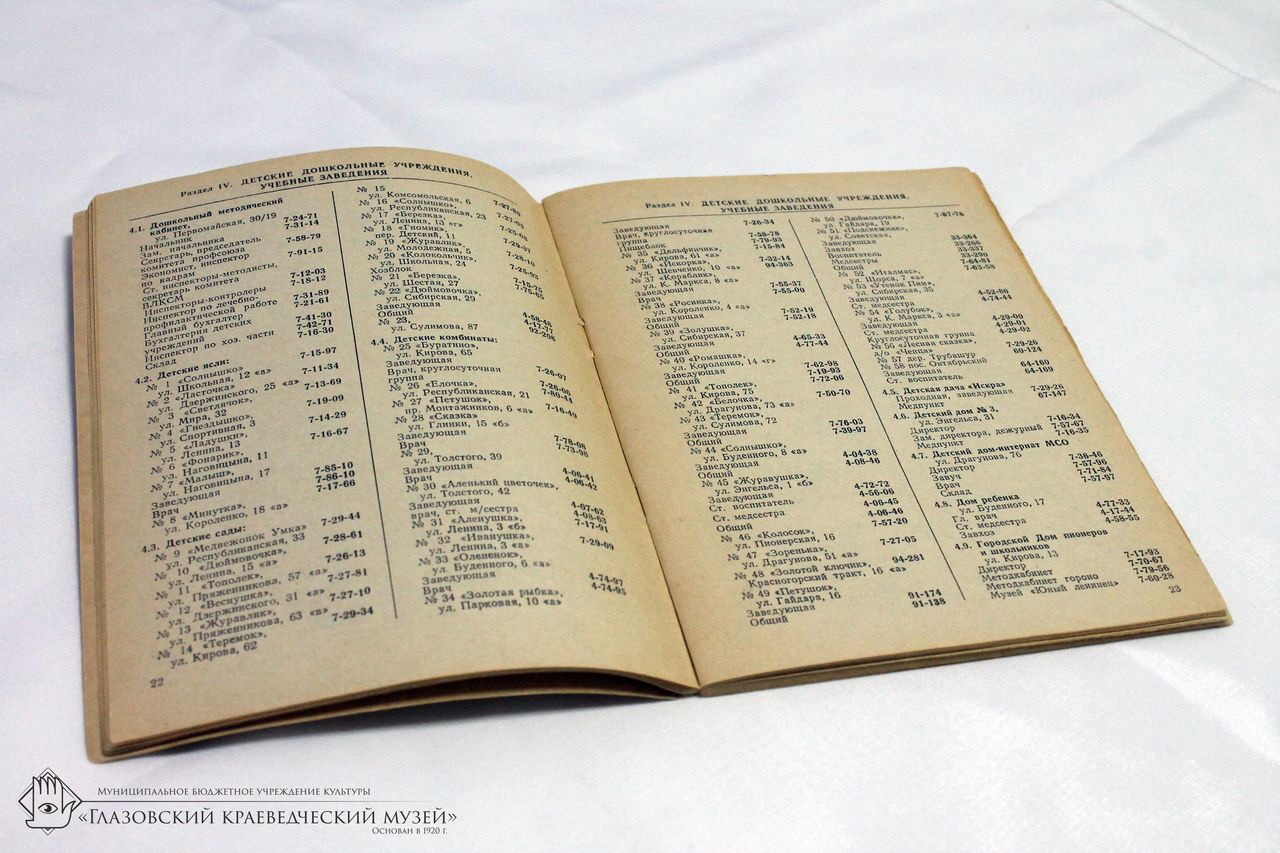 Раздел IV. ДЕТСКИЕ ДОШКОЛЬНЫЕ УЧРЕЖДЕНИЯ,
УЧЕБНЫЕ ЗАВЕДЕНИЯ
4.1. Дошкольный методический
кабинет,
ул. Первомайская, 30/19
Начальник 7-24-71
Зам. начальника 7-31-14
Секретарь, председатель
комитета профсоюза 7-58-79
Экономист, инспектор
по кадрам 7-91-15
Ст. инспекторы-методисты,
секретарь комитета
ВЛКСМ 7-12-03
Инспекторы-контролеры 7-18-12
Инспектор по лечебно-
профилактической работе 7-31-89
Главный бухгалтер 7-21-61
Бухгалтерия детских
учреждений 7-41-30
Инспектор по хоз. части 7-42-71
Склад 7-16-30
4.2. Детские ясли:
№ 1 «Солнышко»,
ул. Школьная, 12 «а» 7-15-97
№ 2 «Ласточка»,
ул. Дзержинского, 25 «а» 7-11-34
№ 3 «Светлячок»,
ул. Мира, 32 7-13-69
№ 4 «Гнездышко»,
ул. Спортивная, 3 7-19-09
№ 5 «Ладушки»,
ул. Ленина, 13 7-14-29
№ 6 «Фонарик»,
ул. Наговицына, 11 7-16-67
№ 7 «Малыш»,
ул. Наговицына, 17
Заведующая 7-85-10
Врач 7-86-10
№ 8 «Минутка», 7-17-66
ул. Короленко, 18 «а»
4.3. Детские сады:
№ 9 «Медвежонок Умка»
ул. Республиканская, 33 7-29-44
№ 10 «Дюймовочка»,
ул. Ленина, 15 «а» 7-28-61
№ 11 «Тополек»,
ул. Пряженникова, 57 «а» 7-26-13
№ 12 «Веснушка»,
ул. Дзержинского, 31 «а» 7-27-81
№ 13 «Журавлик»,
ул. Пряженникова, 63 «в» 7-27-10
№ 14 «Теремок»,
ул. Кирова, 62 7-29-34
22
№ 15
ул. Комсомольская, 6
№ 16 «Солнышко»,
ул. Республиканская, 23
№ 17 «Березка»,
ул. Ленина, 13 «г»
№ 18 «Гномик»,
пер. Детский, 11
№ 19 «Журавлик»,
ул. Молодежная, 5 7-29-37
№ 20 «Колокольчик»,
ул. Школьная, 24
Хозблок
№ 21 «Березка»,
ул. Шестая, 27
№ 22 «Дюймовочка»,
ул. Сибирская, 29
Заведующая
Общий
№ 23,
ул. Сулимова, 87
4.4. Детские комбинаты:
№ 25 «Буратино»,
ул. Кирова, 65
Заведующая
Врач, круглосуточная
группа
№ 26 «Елочка»,
ул. Республиканская, 21
№ 27 «Петушок»,
пр. Монтажников, 6 «а» 7-16-49
№ 28 «Сказка»
ул. Глинки, 15 «б»
Заведующая
Врач
№ 29,
ул. Толстого, 39
Заведующая
Врач 4-06-41
№ 30 «Аленький цветочек», 4-06-42
ул. Толстого, 42
Заведующая
врач, ст. м/сестра 4-07-62
№ 31 «Аленушка»,
ул. Ленина, 3 «б» 7-17-91
№ 32 «Иванушка»,
ул. Ленина, 3 «а» 7-29-09
№ 33 «Олененок»,
ул. Буденного, 6 «а»
Заведующая 4-74-97
Врач 4-74-95
№ 34 «Золотая рыбка»,
ул. Парковая, 10 «а»
Раздел IV. ДЕТСКИЕ ДОШКОЛЬНЫЕ УЧРЕЖДЕНИЯ,
УЧЕБНЫЕ ЗАВЕДЕНИЯ
Заведующая 7-26-34
Врач, круглосуточная
группа 7-58-78
Пищеблок 7-79-93
№ 35 «Дельфинчик», 7-15-84
ул. Кирова, 61 «а»
№ 36 «Искорка», 7-32-14
ул. Шевченко, 10 «а» 94-363
№ 37 «Кораблик»,
ул. К. Маркса, 8 «а»
Заведующая 7-55-37
Врач 7-55-00
№ 38 «Росинка»,
ул. Короленко, 4 «а»
Заведующая 7-52-19
Общий 7-52-18
№ 39 «Золушка»,
ул. Сибирская, 37
Заведующая 4-65-33
Общий 4-77-44
№ 40 «Ромашка»,
ул. Короленко, 14 «г»
Заведующая 7-62-98
Общий 7-19-93
№ 41 «Тополек», 7-72-06
ул. Кирова, 75
№ 42 «Белочка», 7-50-70
ул. Драгунова, 73 «а»
№ 43 «Теремок»,
ул. Сулимова, 72
Заведующая 7-76-03
Общий 7-39-97
№ 44 «Солнышко»,
ул. Буденного, 8 «а»
Заведующая 4-04-38
Общий 4-08-46
№ 45 «Журавушка»,
ул. Энгельса, 1 «б»
Заведующая 4-72-72
Ст. воспитатель 4-56-06
Ст. медсестра 4-06-45
Общий 4-06-46
№ 46 «Колосок», 7-57-20
ул. Пионерская, 16
№ 47 «Зоренька», 7-27-05
ул. Драгунова, 51 «а»
№ 48 «Золотой ключик», 94-281
Красногорский тракт, 16 «а»
№ 49 «Петушок»,
ул. Гайдара, 16
Заведующая 91-174
Общий 91-138
№ 50 «Дюймовочка», 7-67-76
ул. Гайдара, 19
№ 51 «Подснежник»,
ул. Советская,
Заведующая 33-364
Завхоз 33-266
Воспитатель 33-337
Медсестры 33-290
Общий 7-64-81
№ 52 «Италмас», 7-63-58
ул. Щорса, 7 «а»
№ 53 «Утенок Пин»,
ул. Сибирская, 35
Заведующая 4-52-86
Ст. медсестра 4-74-44
№ 54 «Голубок»,
ул. К. Маркса, 3 «а»
Заведующая 4-29-00
Ст. медсестра 4-29-01
Круглосуточная группа 4-29-02
№ 56 «Лесная сказка»,
д/о «Чепца» 7-29-26
№ 57 дер. Трубашур 60-124
№ 58 пос. Октябрьский
Заведующая 64-160
Ст. воспитатель 64-169
4.5. Детская дача «Искра»
Проходная, заведующая 7-29-26
Медпункт 67-147
4.6. Детский дом № 3,
ул. Энгельса, 31
Директор 7-16-34
Зам. директора, дежурный 7-57-67
Медпункт 7-16-35
4.7. Детский дом-интернат МСО
ул. Драгунова, 76
Директор 7-36-46
Завуч 7-57-96
Врач 7-71-84
Склад 7-57-97
4.8. Дом ребенка
ул. Буденного, 17
Гл. врач 4-77-33
Ст. медсестра 4-17-44
Завхоз 4-58-55
4.9. Городской Дом пионеров
и школьников
ул. Кирова, 13
Директор 7-17-93
Методкабинет 7-70-67
Методкабинет гороно 7-79-56
Музей «Юный ленинец» 7-60-28
23
Муниципальное бюджетное учреждение культуры
«Глазовский краеведческий музей»
Основан в 1920 г.